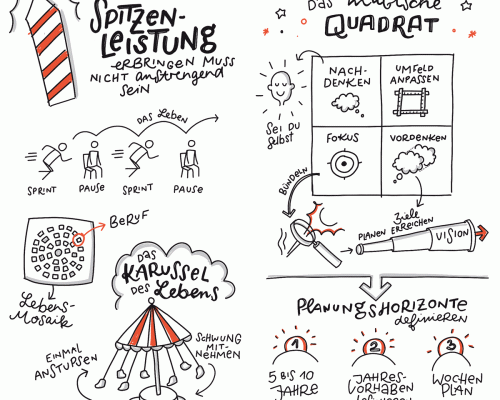 SPITZEN-
LEISTUNG
ERBRINGEN MUSS
NICHT anstrengend
SEIN
DAS LEBEN
SPRINT
PAUSE
SPRINT
PAUSE
BERUF
Lebens-
Mosaik
DAS
KARUSSEL
DES Lebens
EINMAL
ANSTUPSEN
SCHWUNG
MIT-
NEHMEN
Das
QUADRAT
NACH-
DENKEN
UMFELD
ANPASSEN
FOKUS
VORDENKEN
Sei Du
selbst
BÜNDELN
Ziele
PLANEN ERREICHEN
VISION
PLANUNGSHORIZONTE
definieren
1
2
3
5 BIS 10
JAHRE
JAHRES-
VORHABEN
WOCHEN
PLAN